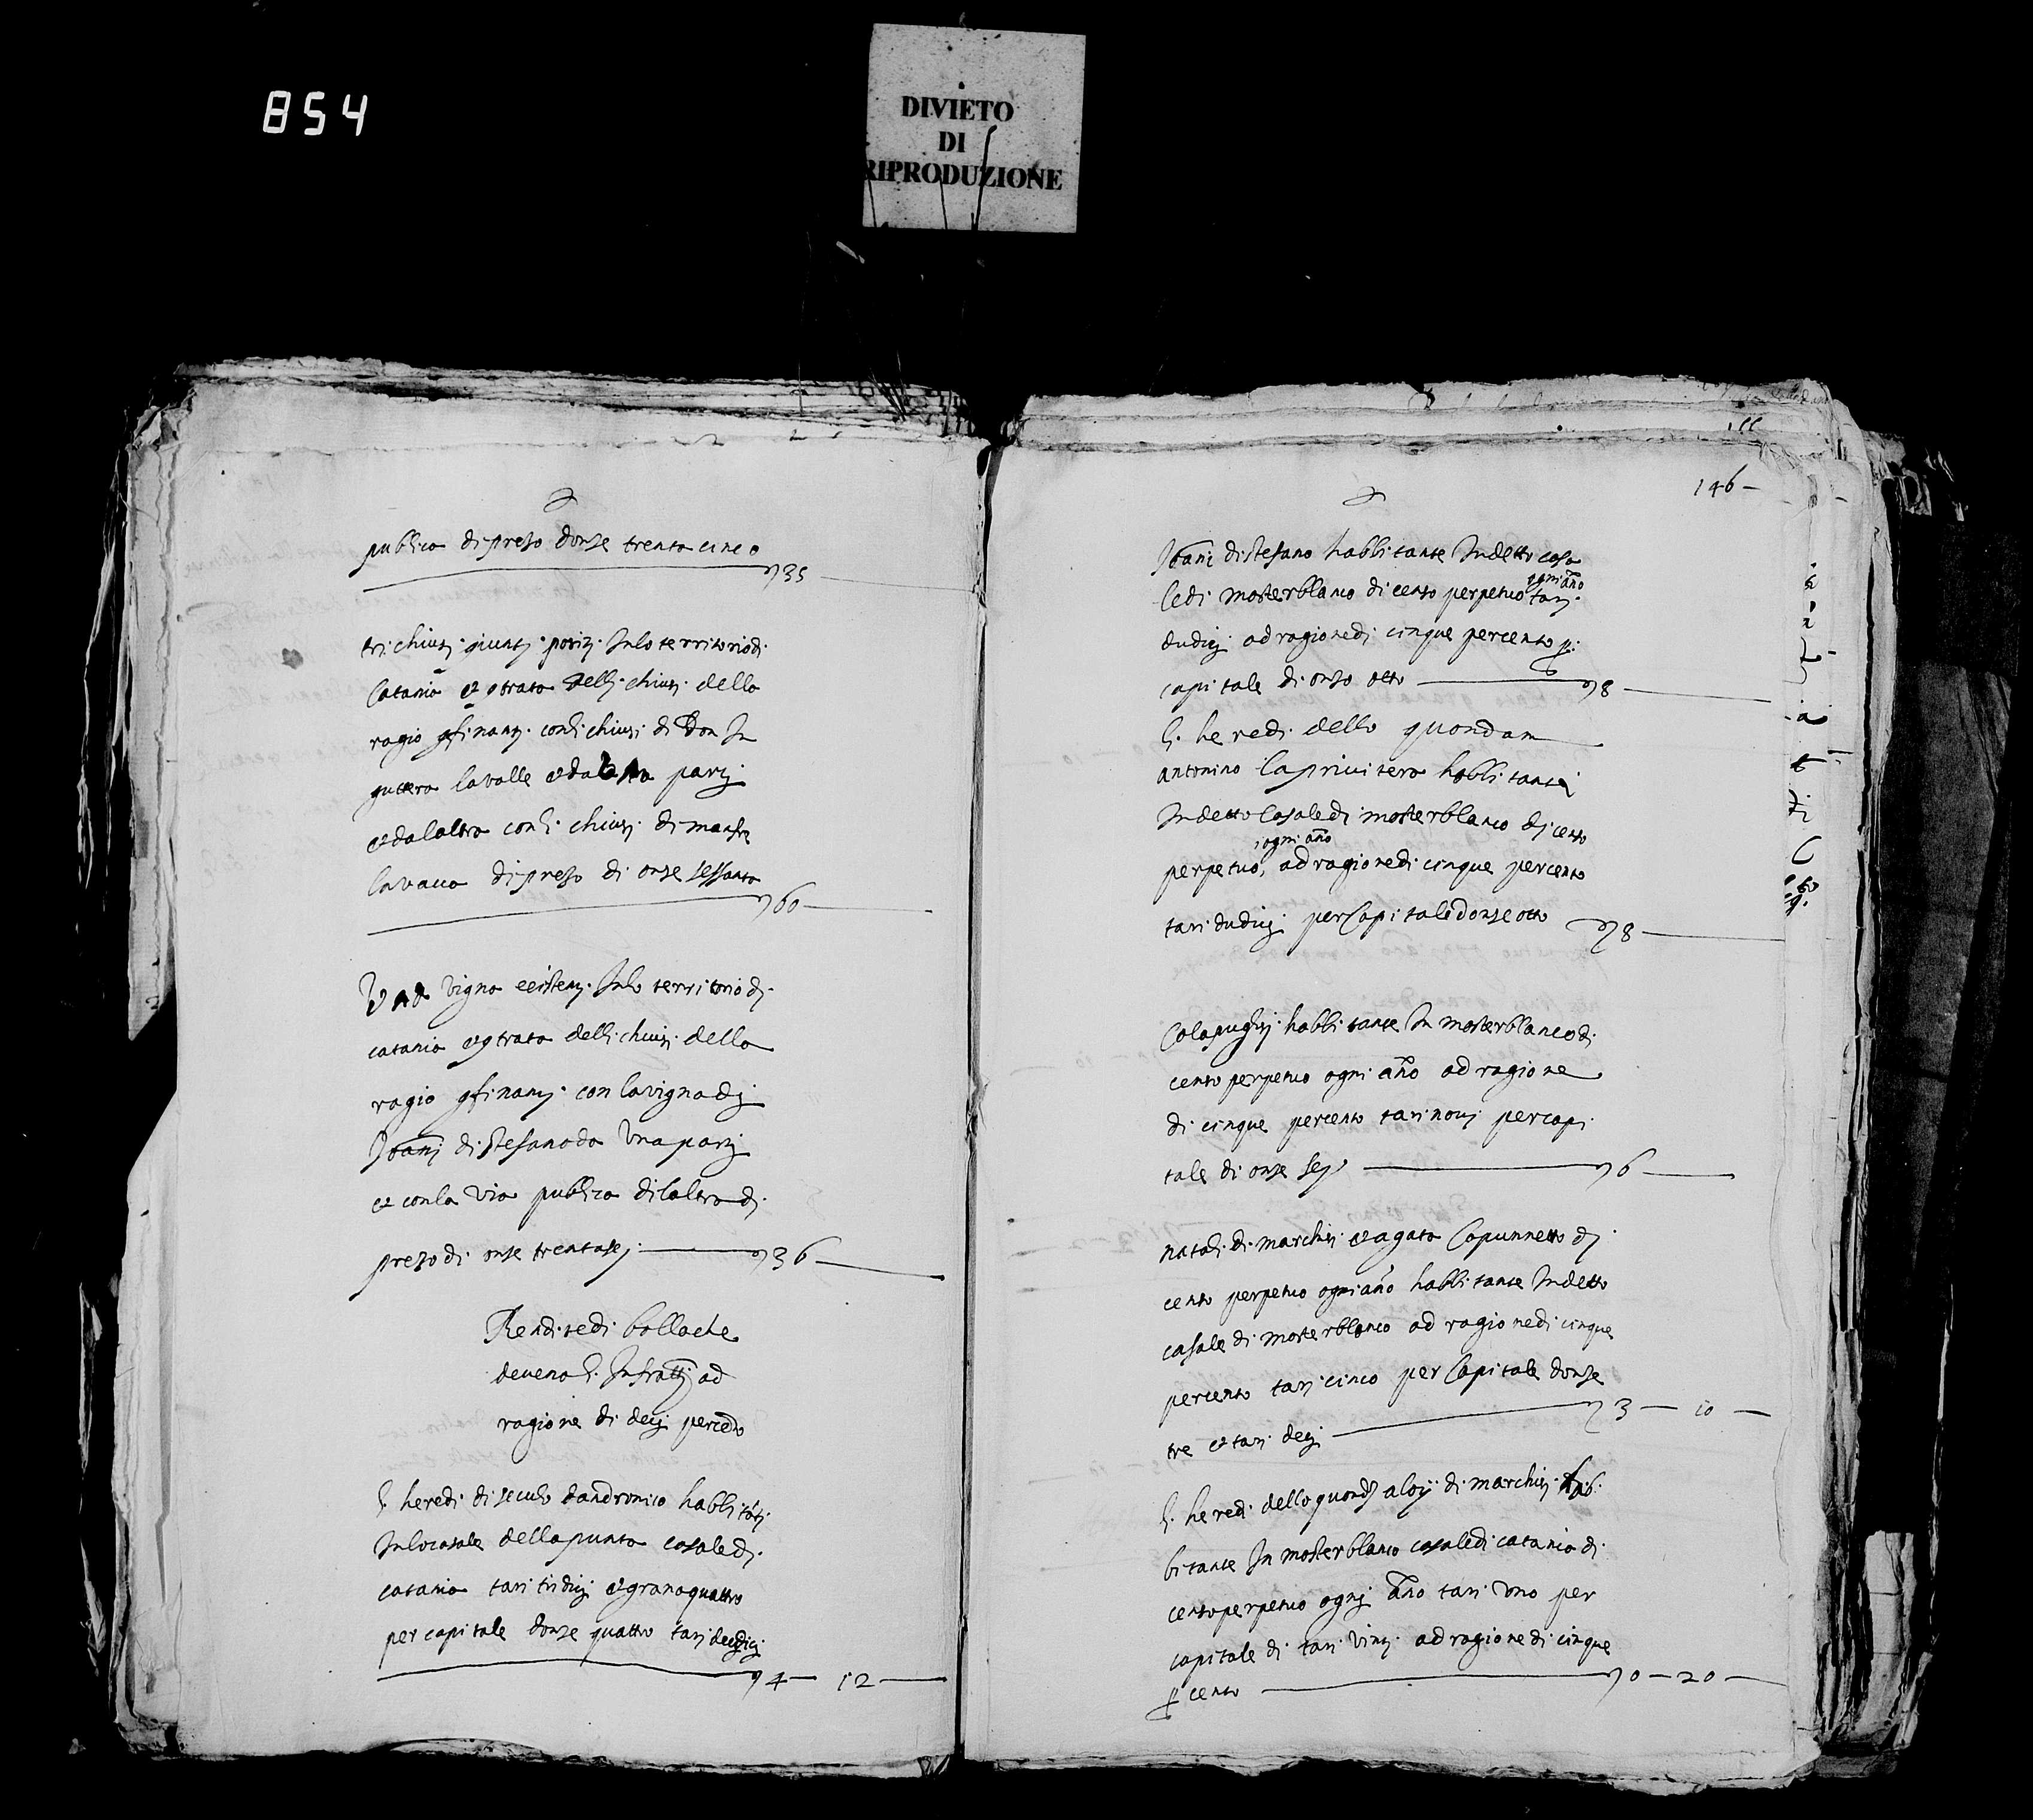 854
DIVIETO
DI
RIPRODUZIONE
publica di prezo donze trenta cinco
35
tri chiusi giunti positi In lo territorio di
Catania et contrata delli chiusi dello
ragio confinanti con li chiusi di Don Ju
gutera la valle et da una parti
et dalaltra con li chiusi di
la vacca di prezo di onze sessanta
60
Una vigna existenti In lo territorio di
catania et contrata delli chiusi dello
ragio confinanti con la vigna di
Joanni di stefano da Una parti
et con la via publica di laltra di
prezo di onze trentasej 36
Rendite di bolla che
deveno li Infratti ad
ragione di deci per cento
li heredi di dandronico habbitāti
In lo casale della punta casale di
catania tari tridici et grana quattro
per capitale donze quattro tari dudici
4 12
146
Joanni di stefano habbitante In detto casa
le di mosterblanco di cento perpetuo ogni año tari
dudici ad ragione di cinque per cento p:
capitale di onzo otto 8
li heredi dello quondam
antonino la privitera habbitante
In detto Casale di mosterblanco di cento
perpetuo, ogni año ad ragione di cinque per cento
tari dudici per Capitale donze otto 8
Cola habbitante In mosterblanco di
cento perpetuo ogni año ad ragione
di cinque per cento tari novi per capi
tale di onze sej 6
natali di marchisi et agata Capunnetto di
cento perpetuo ogni año habbitante In detto
casale di mosterblanco ad ragione di cinque
per cento tari cinco per Capitale donze
3 10
tre et tari deci
li heredi dello quondam aloysi di marchisi hab
bitante In mosterblanco casale di catania di
cento perpetuo ogni año tari Uno per
capitale di tari vinti ad ragione di cinque
p cento 0 20